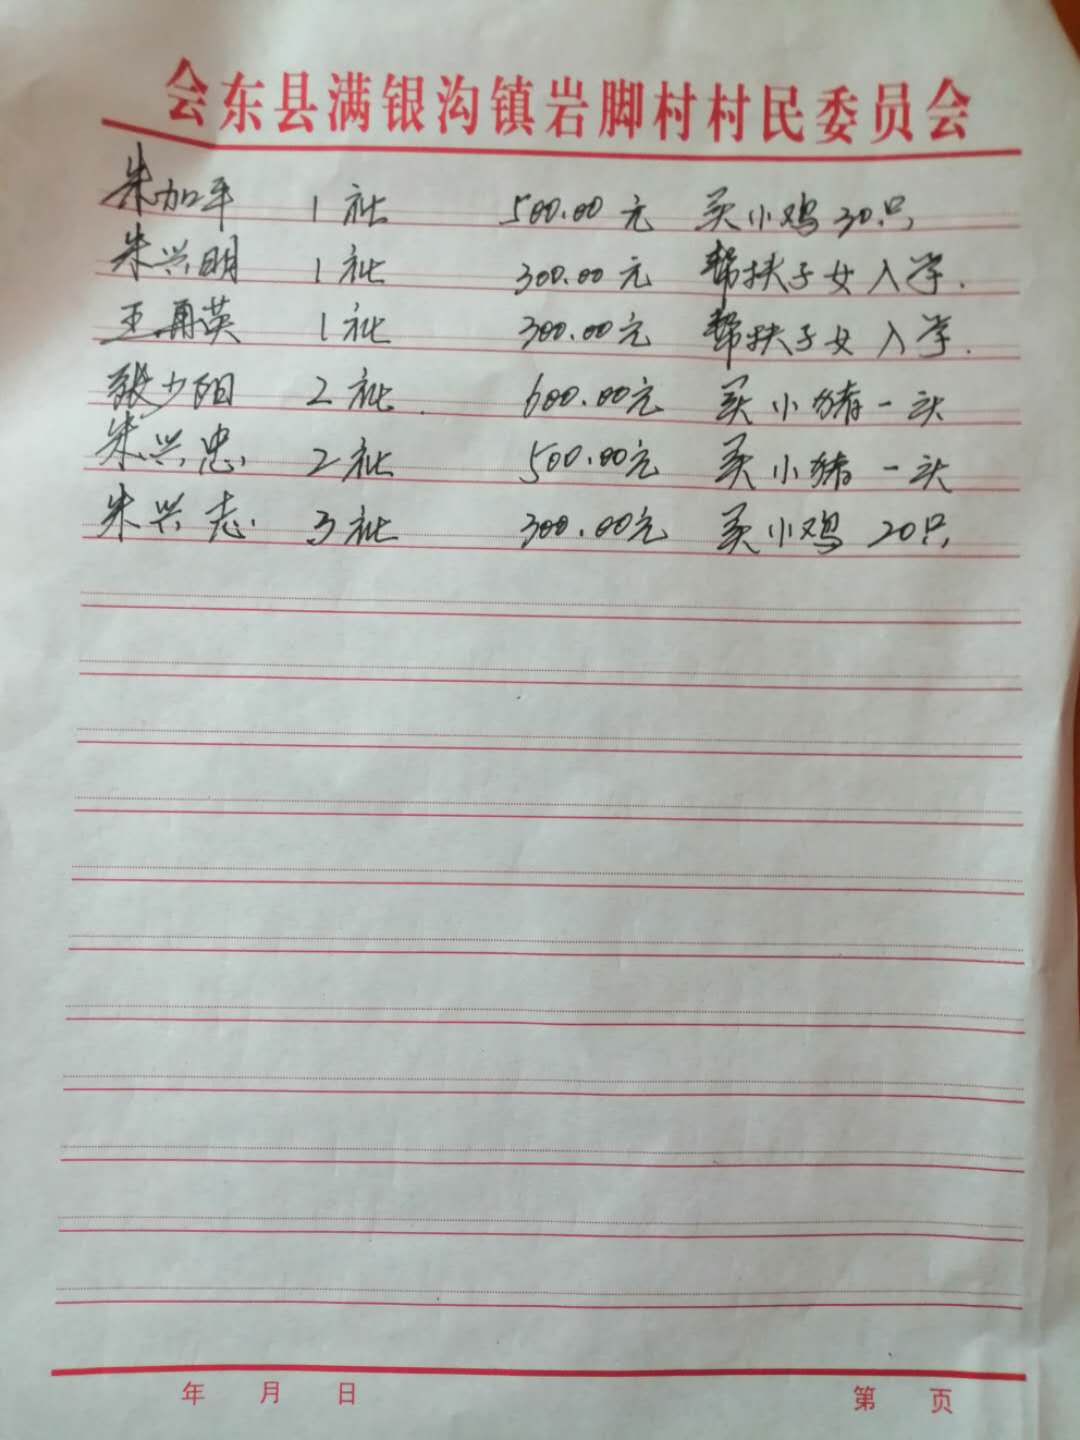 会东县满银沟镇岩脚村村民委员会
朱加平 1社 500.00元 买小鸡30只
朱兴明 1社 300.00元 帮扶子女入学.
王再英 1社 300.00元 帮扶子女入学.
张少阳 2社. 600.00元 买小猪一头
朱兴忠 2社 500.00元 买小猪一头
朱兴志 3社 300.00元 买小鸡20只
年 月 日 第 页